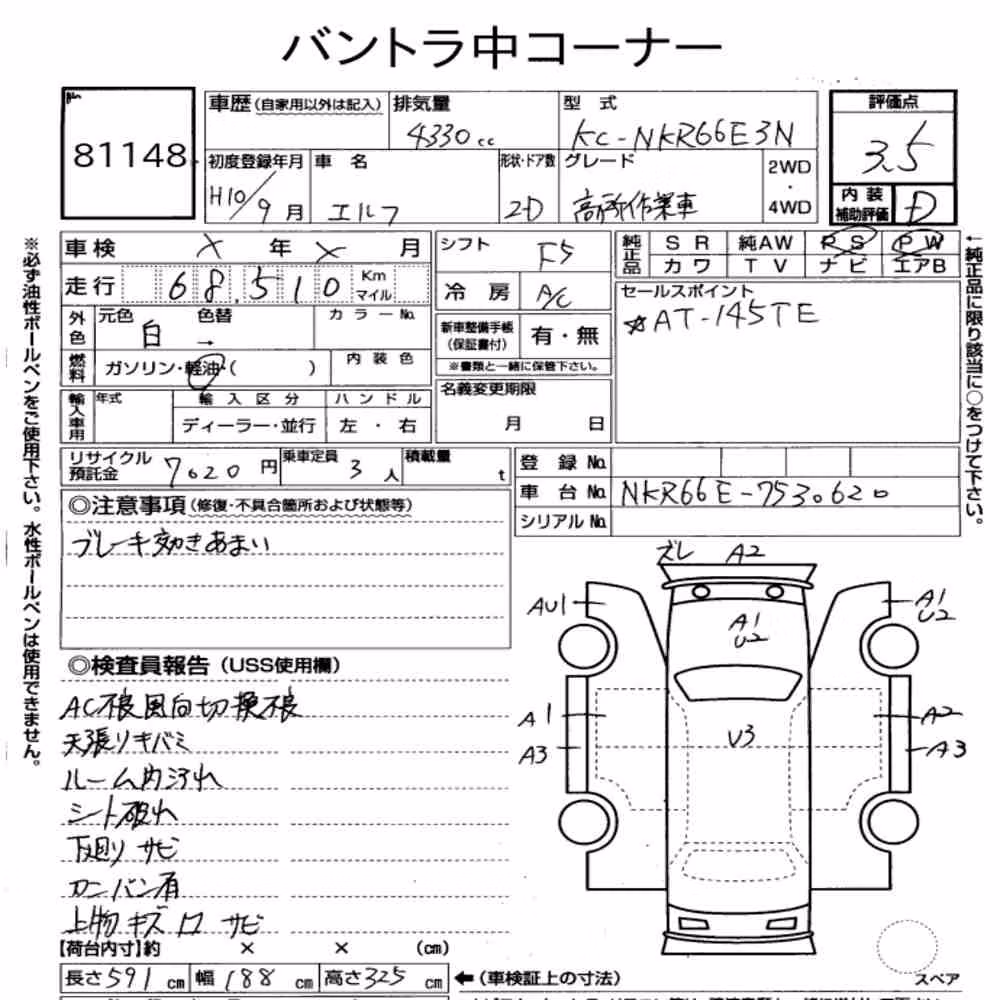 バントラ中コーナー
81148
車歴 (自家用以外は記入)
排気量
4330 cc
型式
KC-NKR66E3N
評価点
3.5
内装補助評価
D
初度登録年月
H10/9月
車名
エルフ
形状・ドア数
2D
グレード
高所作業車
2WD
・
4WD
車検 × 年 × 月
シフト
F5
純正品
SR 純AW PS PW
カワ TV ナビ エアB
走行 68.510 Km マイル
冷房
A/C
セールスポイント
☆AT-145TE
外色
元色 色替
白 →
カラーNo.
新車整備手帳
(保証書付)
有・無
※書類と一緒に保管下さい。
燃料
ガソリン・軽油・( )
内装色
名義変更期限
月 日
輸入車用
年式
輸入区分
ディーラー・並行
ハンドル
左・右
リサイクル預託金 7020 円
乗車定員 3 人
積載量 t
登録No.
車台No. NKR66E-7530620
シリアルNo.
◎注意事項 (修復・不具合箇所および状態等)
ブレーキ効きあまい
◎検査員報告 (USS使用欄)
AC不良 風向切換不良
天張りキバミ
ルーム内汚れ
シート破れ
下廻り サビ
カンバン有
上物 キズ 凹 サビ
【荷台内寸】約 × × (cm)
長さ 591 cm 幅 188 cm 高さ 325 cm
←(車検証上の寸法)
ズレ A2
AU1
A1
U2
A1
U2
A1
A3
U3
A2
A3
スペア
※必ず油性ボールペンをご使用下さい。水性ボールペンは使用できません。
←純正品に限り該当に○をつけて下さい。